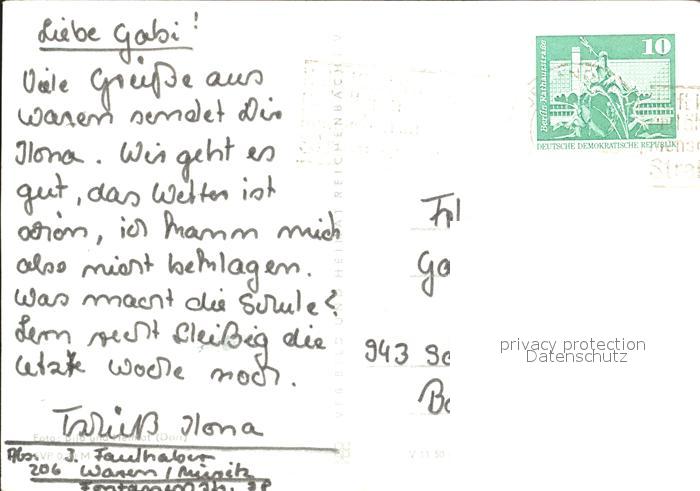 Liebe Gabi!
Viele Grüße aus
Waren sendet Dir
Ilona. Wir geht es
gut, das Wetter ist
schön, ich kann mich
also nicht beklagen.
Was macht die Schule?
Lern recht fleißig die
letzte Woche noch.
Tschüß Ilona
Abs. I. Faulhaber
206 Waren/Müritz
10
Berlin, Rathausstraße
DEUTSCHE DEMOKRATISCHE REPUBLIK
VEB BILD UND HEIMAT REICHENBACH I. V.
943
privacy protection
Datenschutz